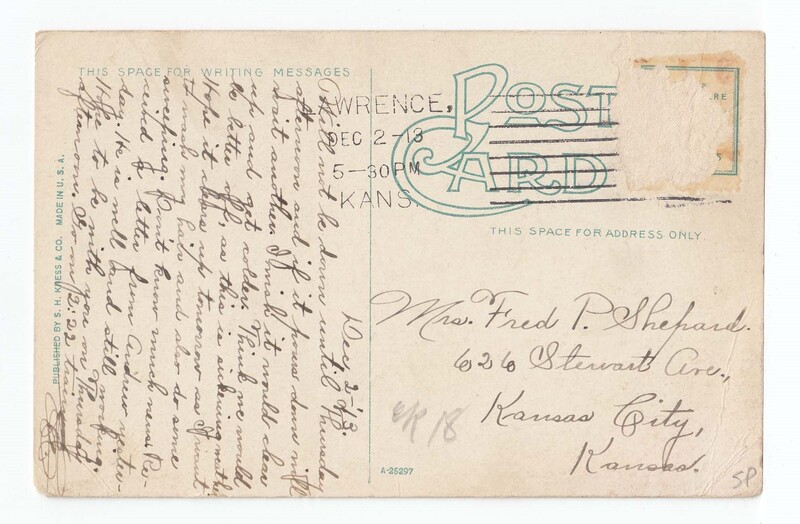 THIS SPACE FOR WRITING MESSAGES
Dec 2-'13.
Will not be down until Thursday
afternoon and if it pours down will
wait another. I wish it would clear
up and get colder. Think we would
be better off, as this is sickening weather
Hope it clears up tomorrow as I want
to wash my hair and also do some
sweeping. Don't know much news Re-
ceived a letter from Andrew yester-
day. He is well and still working.
Hope to be with you on Thursday
afternoon. on 2:22 train
PUBLISHED BY S. H. KRESS & CO. MADE IN U. S. A.
WRENCE,
DEC 2-13
5-30PM
KANS.
POST
CARD
RE
S
THIS SPACE FOR ADDRESS ONLY
Mrs. Fred P. Shepard.
626 Stewart Ave.,
Kansas City,
Kansas.
18
SP
A-25297